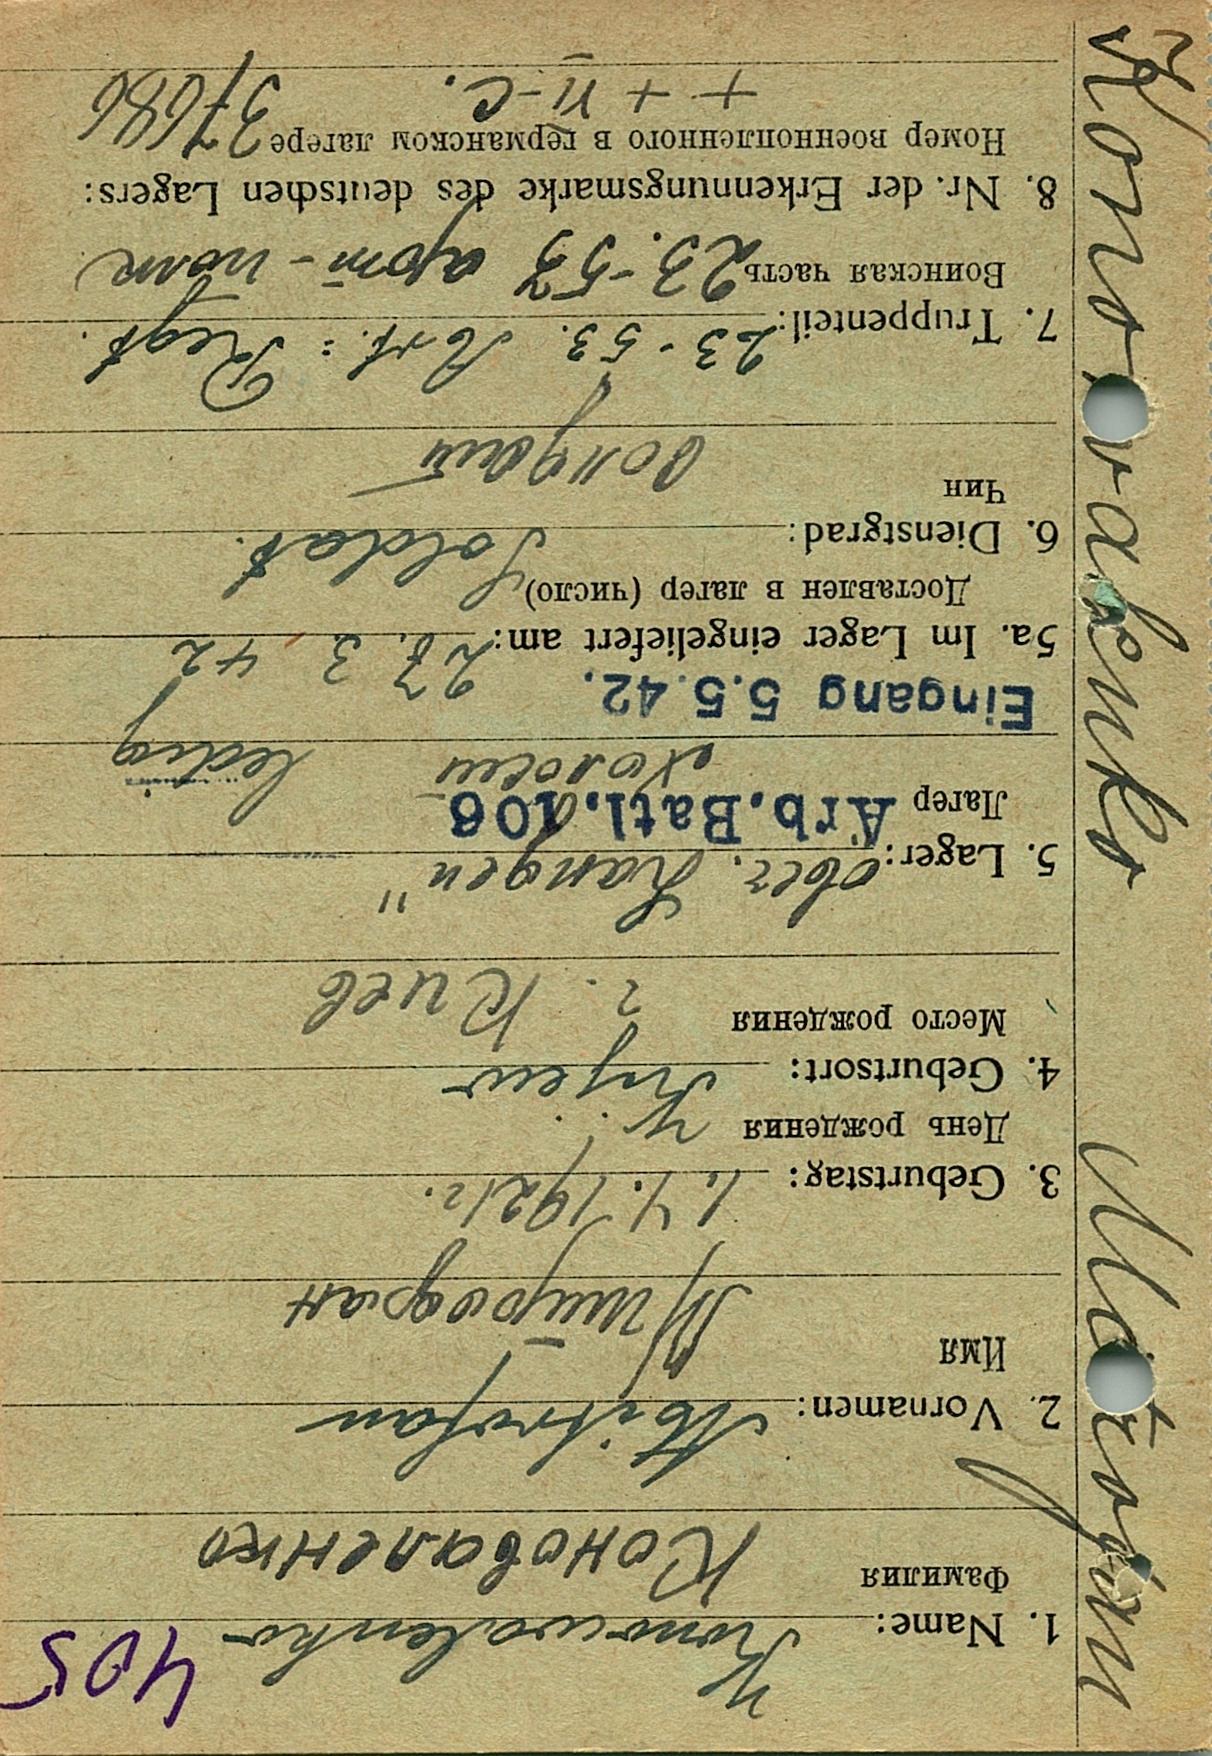 405
1. Name: Konowalenko
Фамилия Коноваленко
2. Vornamen: Mitrofan
Имя Митрофан
3. Geburtstag: 1.4.1921г.
День рождения
4. Geburtsort: Kijew
Место рождения г. Киев
5. Lager: ober. Langen"
Лагер Arb.Batl.106
холост ledig
Eingang 5.5.42.
5a. Im Lager eingeliefert am: 27.3.42
Доставлен в лагер (число)
6. Dienstgrad: Soldat.
Чин солдат
7. Truppenteil: 23-53. Art.= Regt.
Воинская часть 23-53 арт-полк
8. Nr. der Erkennungsmarke des deutschen Lagers:
Номер военнопленного в германском лагере 37686
+ + VI-C.
Konovalenko Mitrofan